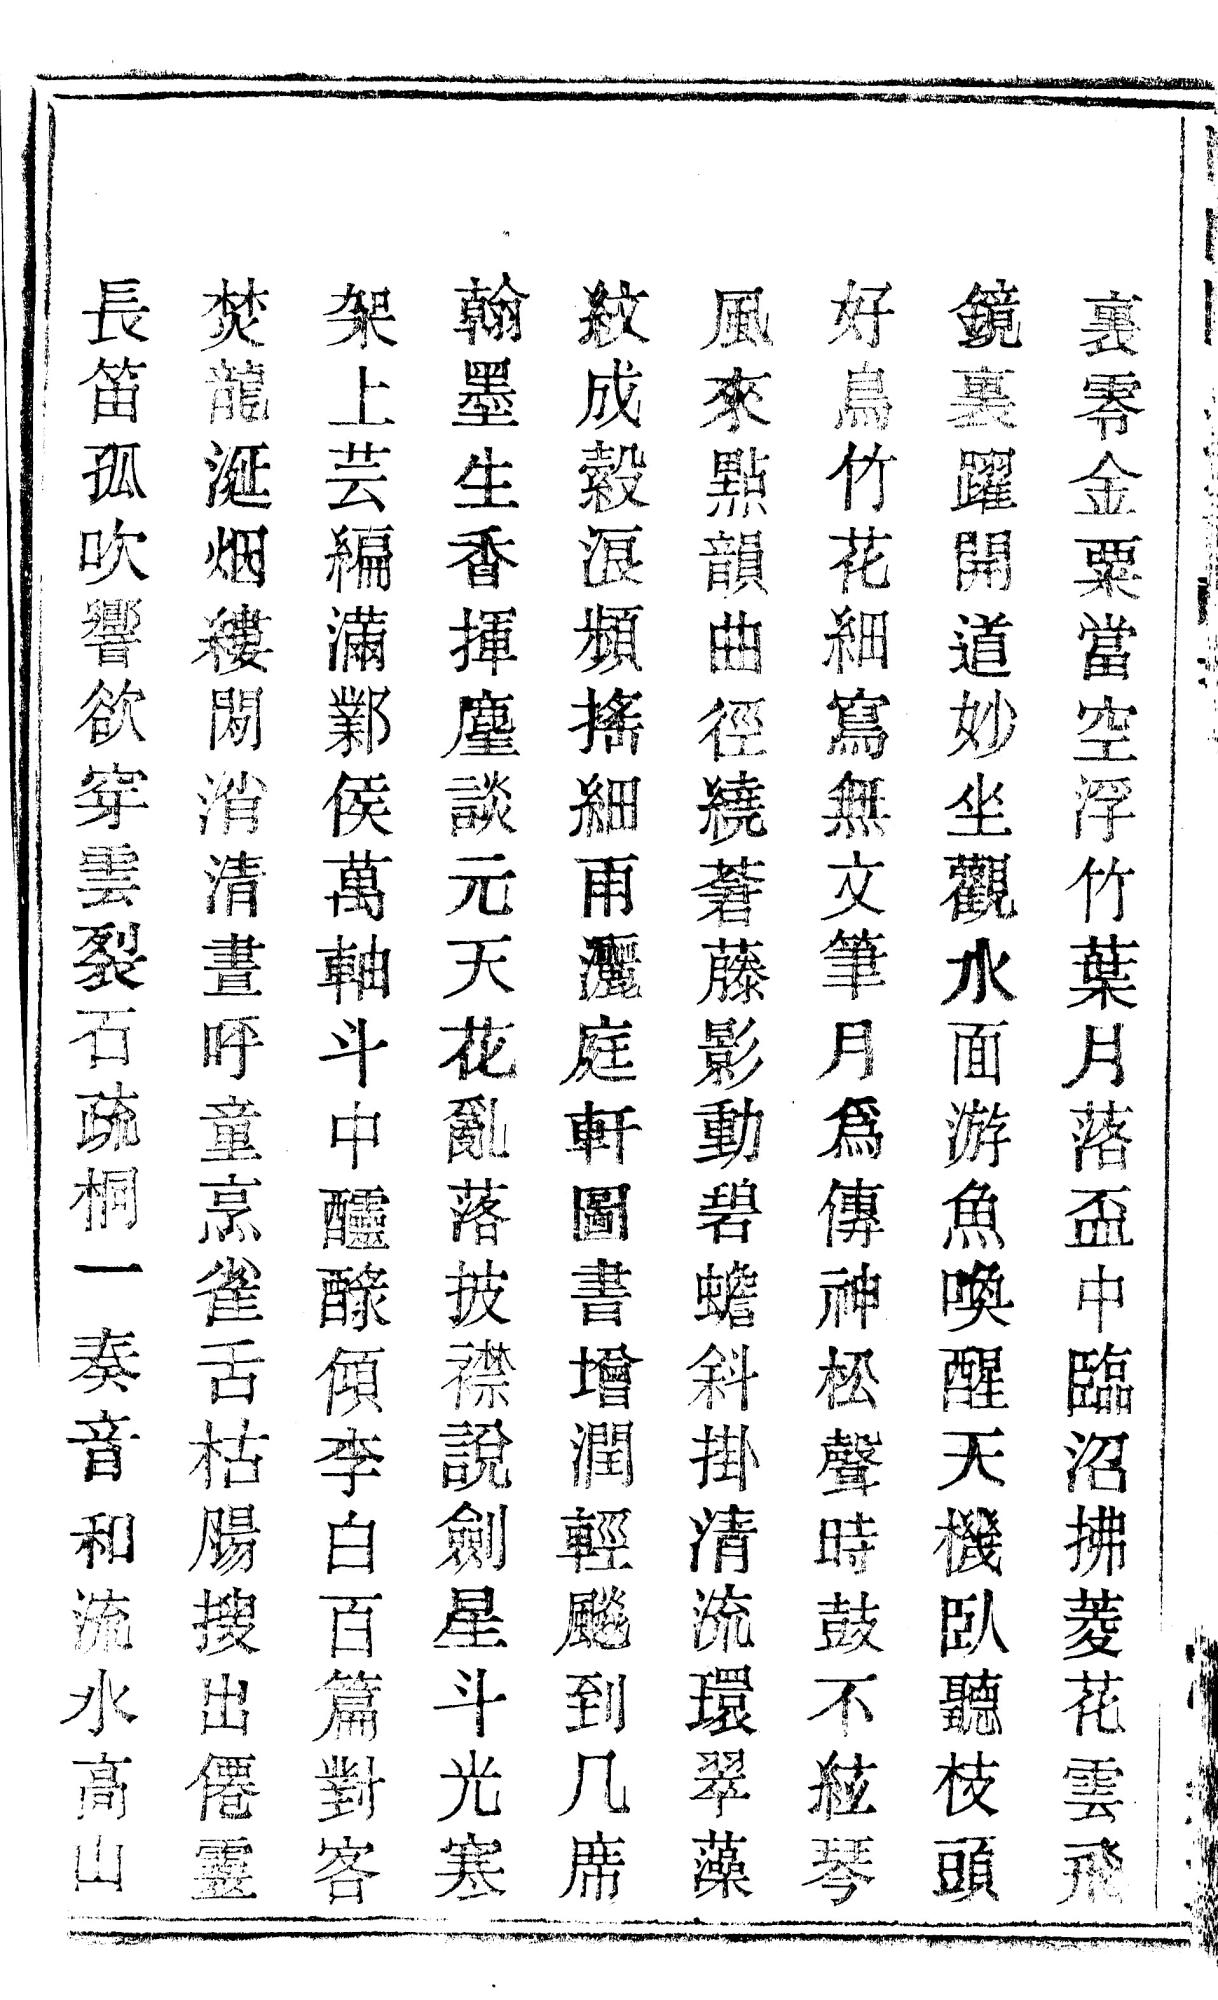 裏零金粟當空浮竹葉月落盃中臨沼拂菱花雲飛
鏡裏躍開道妙坐觀水面游魚喚醒天機臥聽枝頭
好鳥竹花細寫無文筆月爲傳神松聲時鼓不絃琴
風來點韻曲徑繞蒼藤影動碧蟾斜掛清流環翠藻
紋成縠浪頻搖細雨灑庭軒圖書增潤輕颸到几席
翰墨生香揮麈談元天花亂落披襟說劍星斗光寒
架上芸編滿鄴侯萬軸斗中醽醁傾李白百篇對客
焚龍涎烟縷閒消清晝呼童烹雀舌枯腸搜出僊靈
長笛孤吹響欲穿雲裂石疏桐一奏音和流水高山